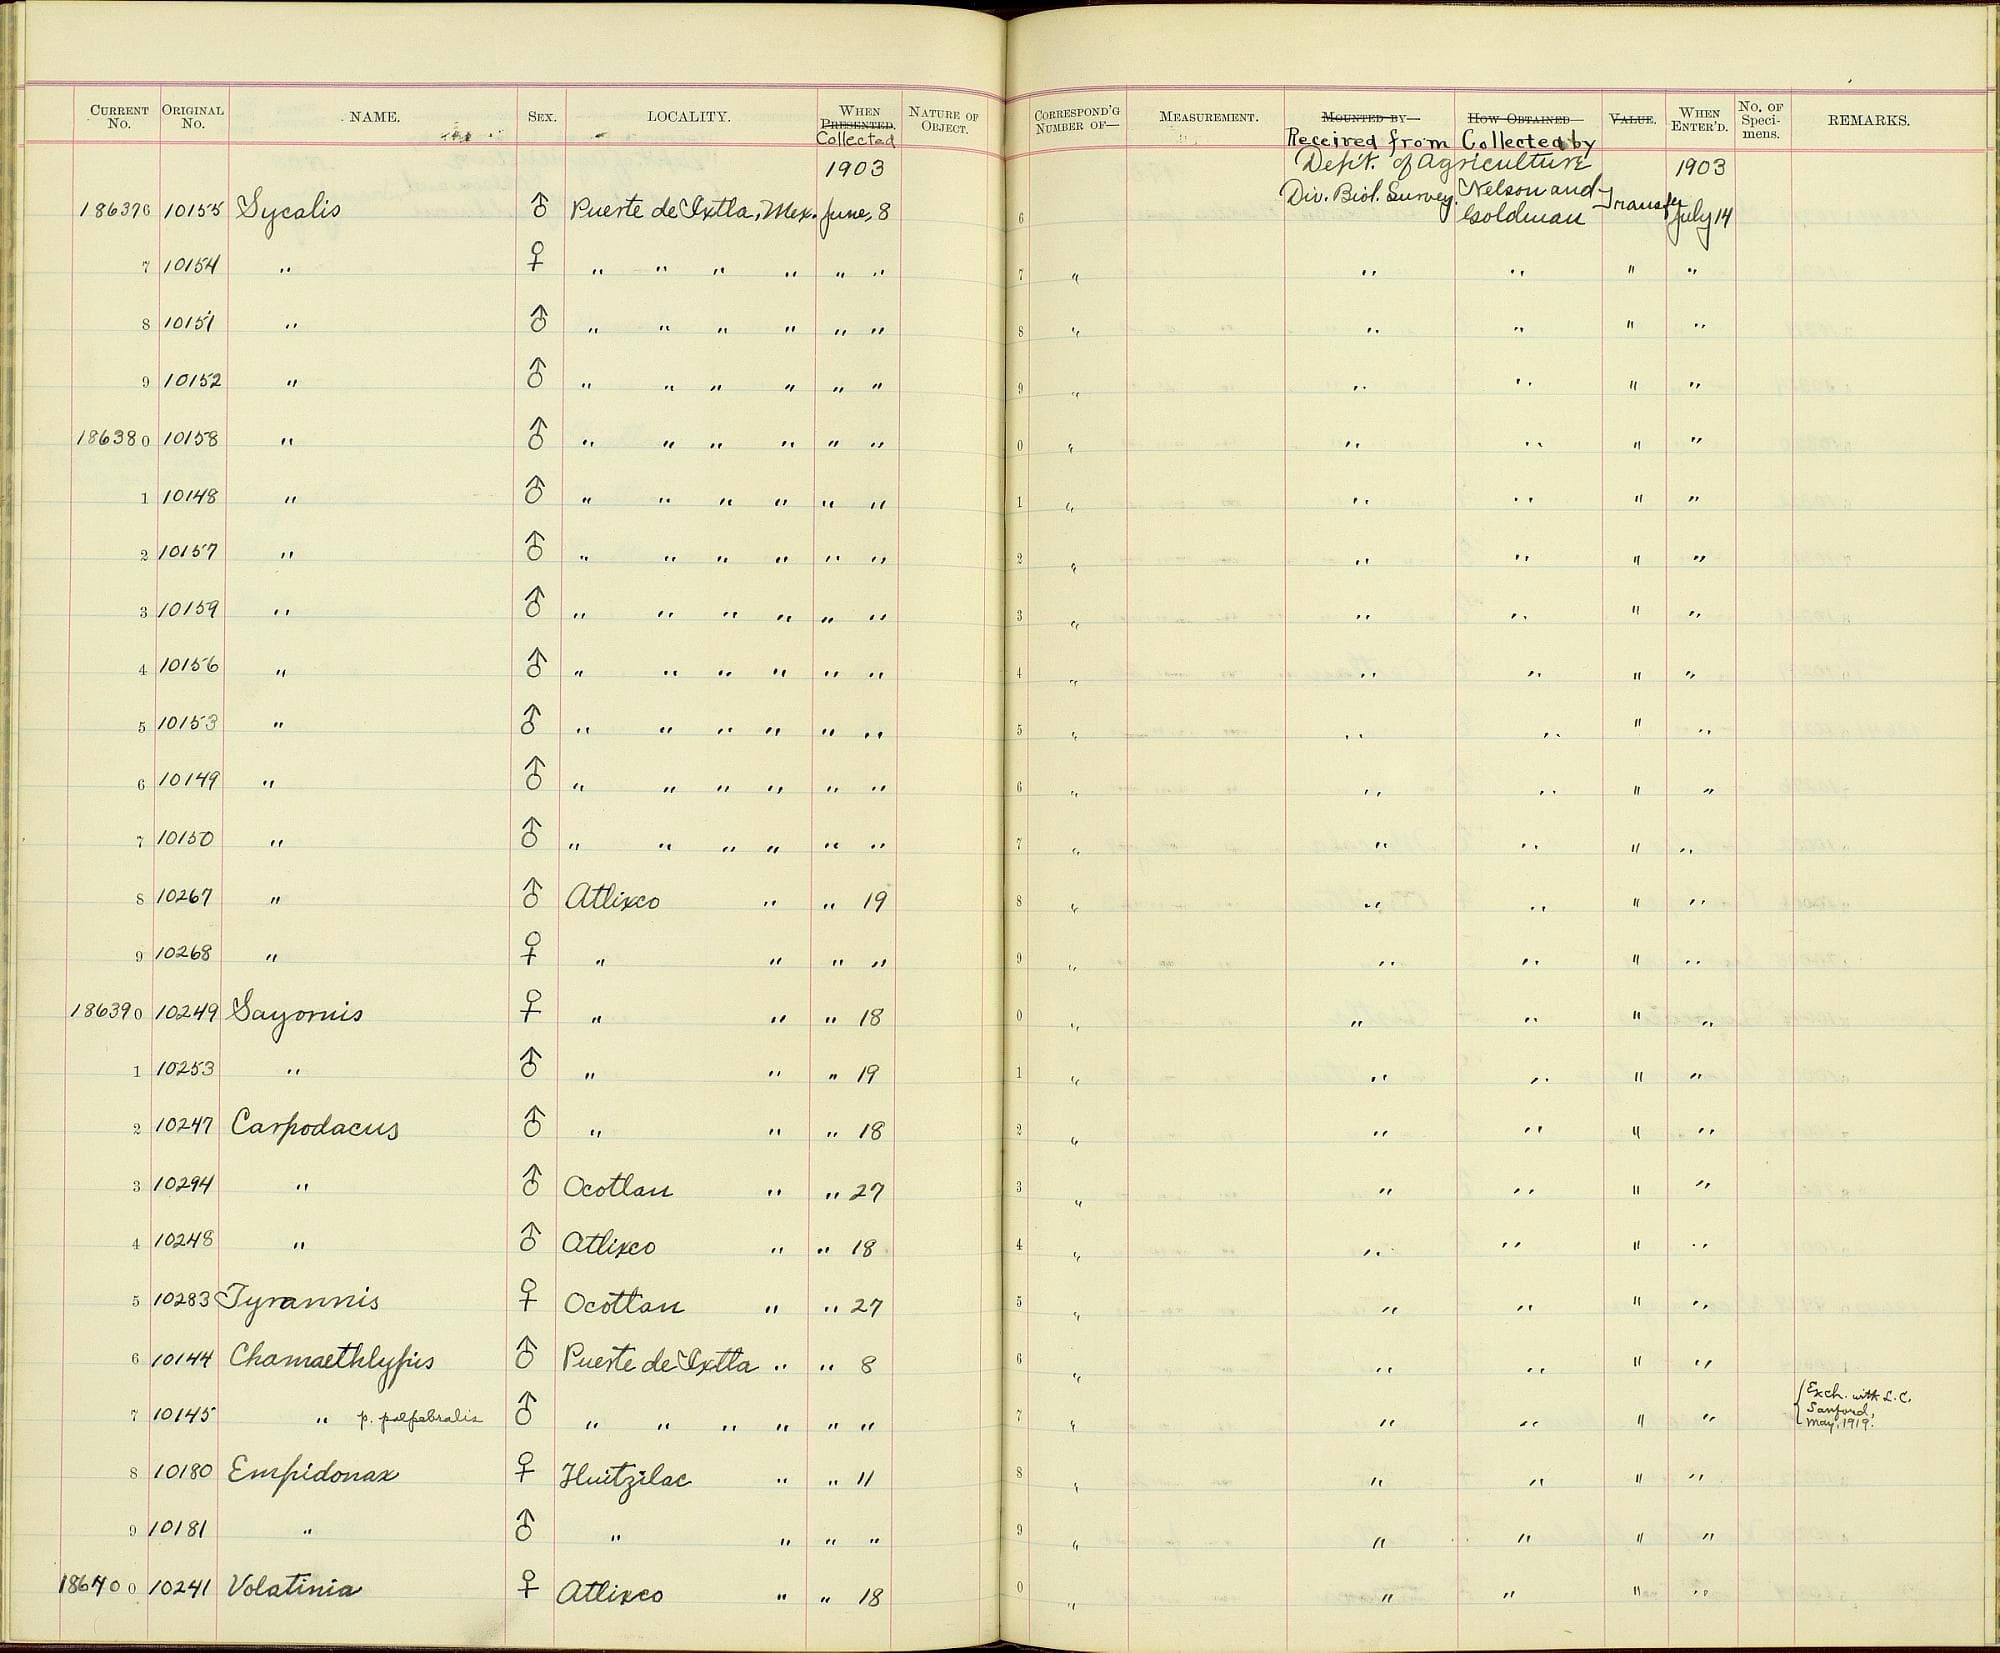 CURRENT No. ORIGINAL No. NAME. SEX. LOCALITY. WHEN PRESENTED. Collected NATURE OF OBJECT. CORRESPOND'G NUMBER OF— MEASUREMENT. MOUNTED BY— Received from HOW OBTAINED Collected by VALUE. WHEN ENTER'D. No. OF Specimens. REMARKS.
1903 Dep't. of Agriculture 1903
186376 10155 Sycalis ♂ Puerte de Ixtla, Mex. June, 8 6 Div. Biol. Survey. Nelson and Goldman Transfer July 14
7 10154 " ♀ " " " " " " 7 " " " " "
8 10151 " ♂ " " " " " " 8 " " " " "
9 10152 " ♂ " " " " " " 9 " " " " "
186380 10158 " ♂ " " " " " " 0 " " " " "
1 10148 " ♂ " " " " " " 1 " " " " "
2 10157 " ♂ " " " " " " 2 " " " " "
3 10159 " ♂ " " " " " " 3 " " " " "
4 10156 " ♂ " " " " " " 4 " " " " "
5 10153 " ♂ " " " " " " 5 " " " " "
6 10149 " ♂ " " " " " " 6 " " " " "
7 10150 " ♂ " " " " " " 7 " " " " "
8 10267 " ♂ Atlixco " " 19 8 " " " " "
9 10268 " ♀ " " " " 9 " " " " "
186390 10249 Sayornis ♀ " " " 18 0 " " " " "
1 10253 " ♂ " " " 19 1 " " " " "
2 10247 Carpodacus ♂ " " " 18 2 " " " " "
3 10294 " ♂ Ocotlan " " 27 3 " " " " "
4 10248 " ♂ Atlixco " " 18 4 " " " " "
5 10283 Tyrannis ♀ Ocotlan " " 27 5 " " " " "
6 10144 Chamaethlypis ♂ Puerte de Ixtla " " 8 6 " " " " "
7 10145 " p. palpebralis ♂ " " " " " " 7 " " " " " Exch. with L.C. Sanford, May, 1919.
8 10180 Empidonax ♀ Huitzilac " " 11 8 " " " " "
9 10181 " ♂ " " " " 9 " " " " "
186400 10241 Volatinia ♀ Atlixco " " 18 0 " " " " "